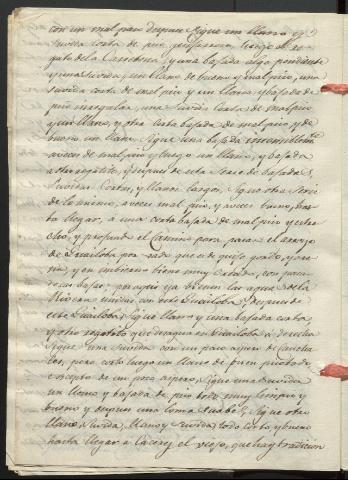 con un mal paso despues sigue un llano y
suvida corta de piso pedregoso, luego el re-
gato de la Carretona, y una bajada algo pendiente
y una suvida, un llano de bueno y mal piso, una
suvida corta de mal piso y un llano y bajada de
piso irregular, una suvida corta de mal piso
y un llano, y otra corta bajada de mal piso, y de
bueno un llano. Sigue una bajada
a veces de mal piso y luego un llano, y bajada
a otro regatito, y despues de esta serie de bajadas,
suvidas cortas, y llanos largos, sigue otra serie
de lo mismo, a veces mal piso, y a veces bueno, has-
ta llegar, a una corta bajada de mal piso y estre-
cho, y profundo el camino para pasar el arroyo
de Guailoba por vado que es de guijo, grado, y are-
na, y en imbierno tiene muy cortado, con para-
das bajas, por aqui ya vienen las aguas de la
Riv con unidas con este Guailoba, despues de
este Guailoba, sigue llano y una bajada corta
y otro regatito que desagua en Guailoba a derecha
sigue una suvida con un paso aspero de canchas
les, pero corto luego un llano de buen piso todo
excepto de un poco aspero, sigue una suvida
un llano y bajada de piso todo muy limpio y
bueno y despues una loma suabe, sigue otro
llano, suvida, llano y suvida, todo corto, y bueno
hasta llegar a Caceres el viejo, que hay tradicion